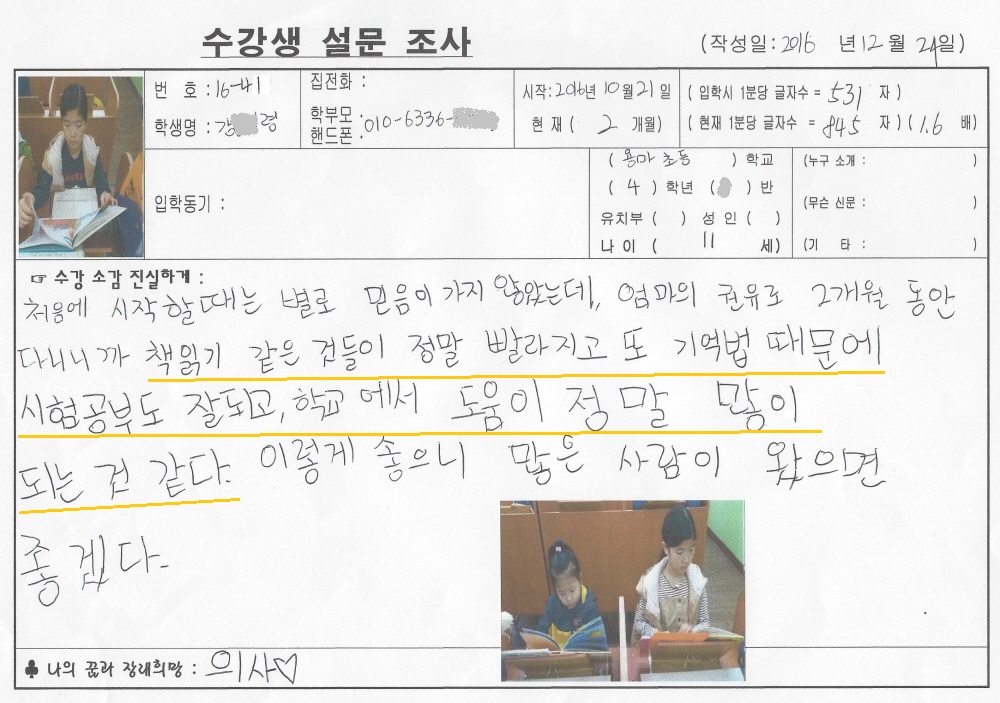 수강생 설문 조사
(작성일: 2016 년 12 월 24일)
번 호 : 16-41
집전화 :
시작: 2016년 10월 21일
( 입학시 1분당 글자수 = 531 자 )
학생명 : 강 령
학부모 핸드폰 : 010-6336-
현 재 ( 2 개월)
( 현재 1분당 글자수 = 845 자 ) ( 1.6 배)
입학동기 :
( 용마 초등 ) 학교
( 4 ) 학년 ( ) 반
유치부 ( ) 성 인 ( )
나 이 ( 11 세)
(누구 소개 : )
(무슨 신문 : )
(기 타 : )
☞ 수강 소감 진실하게 :
처음에 시작할때는 별로 믿음이 가지 않았는데, 엄마의 권유로 2개월 동안
다니니까 책읽기 같은 것들이 정말 빨라지고 또 기억법 때문에
시험공부도 잘되고, 학교에서 도움이 정말 많이
되는 것 같다. 이렇게 좋으니 많은 사람이 왔으면
좋겠다.
♣ 나의 꿈과 장래희망 : 의사♡